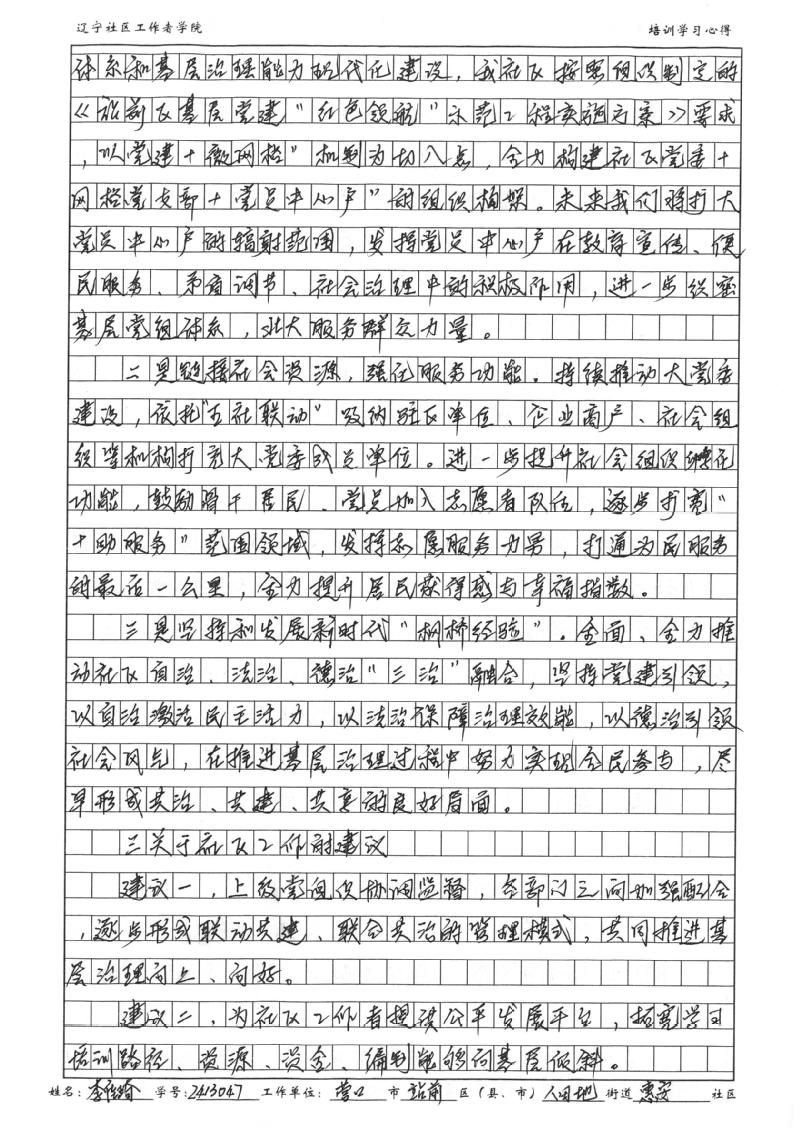 辽宁社区工作者学院 培训学习心得
体系和基层治理能力现代化建设，我社区按照组织制定的
《站前区基层党建“红色领航”示范工程实施方案》要求
，以党建+微网格”机制为切入点，全力构建社区党委+
网格党支部+党员中心户”的组织构架。未来我们将扩大
党员中心户的辐射范围，发挥党员中心户在教育宣传、便
民服务、矛盾调节、社会治理中的积极作用，进一步织密
基层党组体系，壮大服务群众力量。
二是链接社会资源，强化服务功能。持续推动大党委
建设，依托“五社联动”吸纳驻区单位、企业商户、社会组
织等机构扩充大党委成员单位。进一步提升社会组织孵化
功能，鼓励骨干居民、党员加入志愿者队伍，逐步扩宽“
+助服务”范围领域，发挥志愿服务力量，打通为民服务
的最后一公里，全力提升居民获得感与幸福指数。
三是坚持和发展新时代“枫桥经验”。全面、全力推
动社区自治、法治、德治“三治”融合，坚持党建引领，
以自治激活民主活力，以法治保障治理效能，以德治引领
社会风气，在推进基层治理过程中努力实现全民参与，尽
早形成共治、共建、共享的良好局面。
三关于社区工作的建议
建议一，上级党组织协调监督，各部门之间加强配合
，逐步形成联动共建、联合共治的管理模式，共同推进基
层治理向上、向好。
建议二，为社区工作者提供公平发展平台，拓宽学习
培训路径、资源、资金、编制能够向基层倾斜。
姓名：李 学号：2413047 工作单位：营口 市 站前 区（县、市）人民 街道 惠安 社区